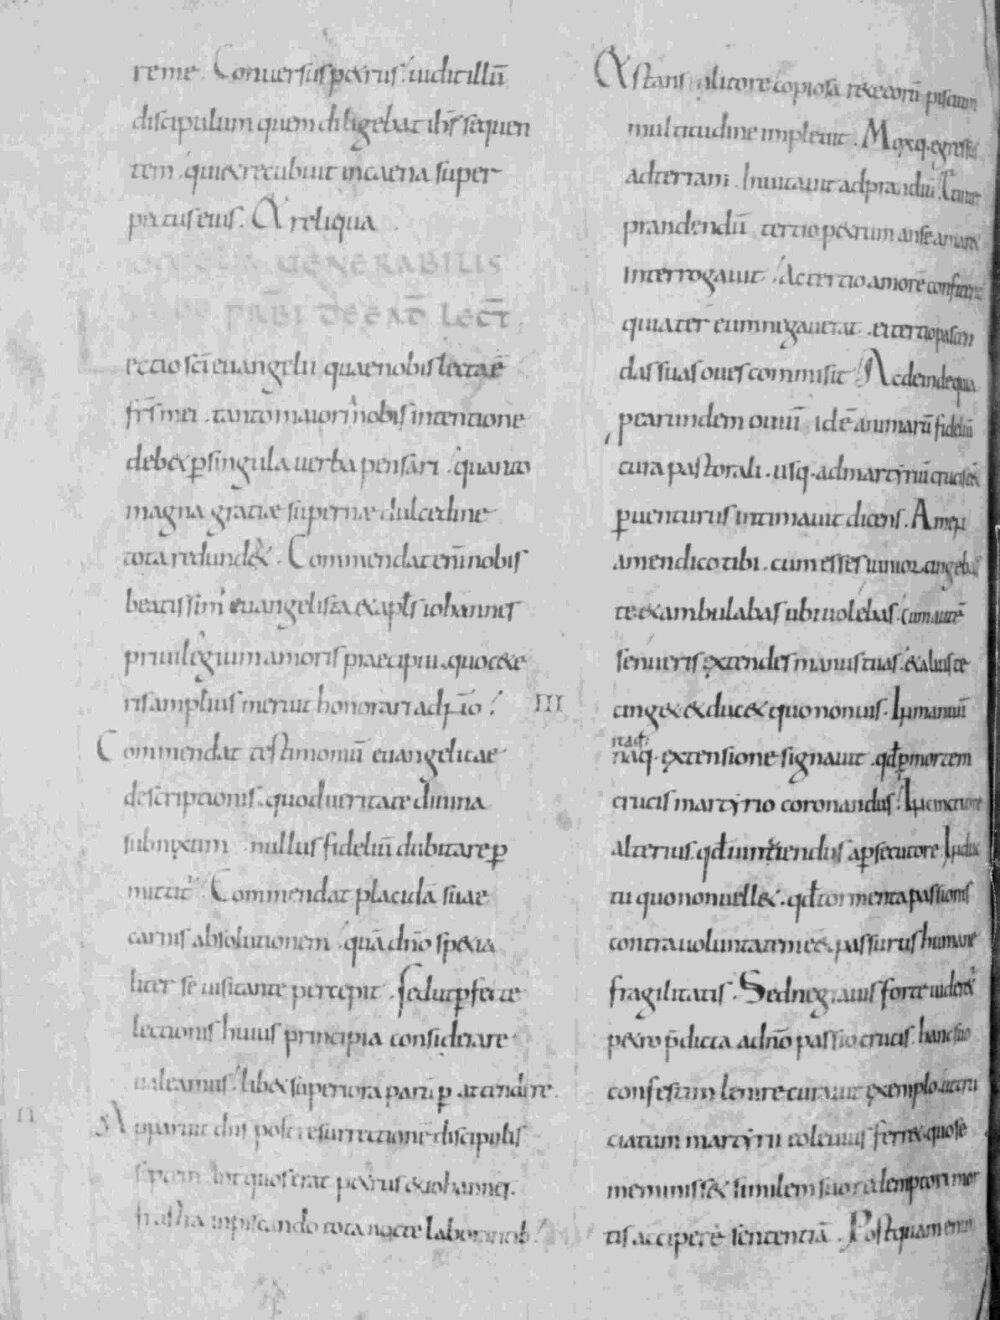 reme. Conuersus petrus. uidit illū
discipulum quem diligebat ih̄s sequen
tem. qui & recubuit in caena super
pectus eius. Et reliqua.
UENERABILIS
PRB̄I DE EAD̄ LECT̄
ectio sc̄i euangelii quae nobis lecta ē
fr̄s mei. tanto maiori nobis intentione
deb& p̄ singula uerba pensari. quanto
magna gratiae supernae dulcedine
tota redund&. Commendat eni nobis
beatissimi euangelistae & apl̄i iohannis
priuilegium amoris praecipui. quo cete
ris amplius meruit honorari a dn̄o.
III
Commendat testimoniū euangelicae
descriptionis. quod ueritate diuina
subnixum nullus fidelium dubitare p̄
mittit. Commendat placidā suae
carnis absolutionem. quā dn̄o specia
liter se uisitante percepit. Sed ut p̄fecte
lectionis huius principia considerare
ualeamus. lib& superiora parū p̄ attendere.
II
Apparuit dn̄s post resurrectionē discipulis
septem. int̄ quos erat petrus & iohannes.
frustra in piscando tota nocte laborantib:
Astans in litore copiosa rete eorū piscium
multitudine impleuit. Moxq. egressis
ad terram. Inuitauit ad prandiū. &
prandendū tertio petrum an se amaret
interrogauit. Ac tertio amorē confitenti
quia ter eum negauerat. et tertio pascen
das suas oues commisit. Ac deinde quia
pro earundem ouiū id ē animarū fideliū
cura pastorali. usq. ad martyriū crucis
p̄uenturus intimauit dicens. Amen
amen dico tibi. cum esses iunior cingebas
te & ambulabas ubi uolebas. cum autē
senueris extendes manus tuas. & alius te
cing& & duc& quo non uis. Per manuū
itaq.
naq. extensione signauit. qd̄ p̄ mortem
crucis martyrio coronandus. Per cinctione
alterius. qd̄ uinciendus a p̄secutore. Per duc
tu quo non uell&. qd̄ tormenta passionis
contra uoluntatem e& passurus humanae
fragilitatis. Sed ne grauis forte uideret̄
petro p̄dicta a dn̄o passio crucis. hanc suo
confestim lenire curauit exemplo. ut cru
ciatum martyrii toleuius ferr&. quo se
meminiss& similem suo redemptori mor
tis accipere sententiā. Postquam enim